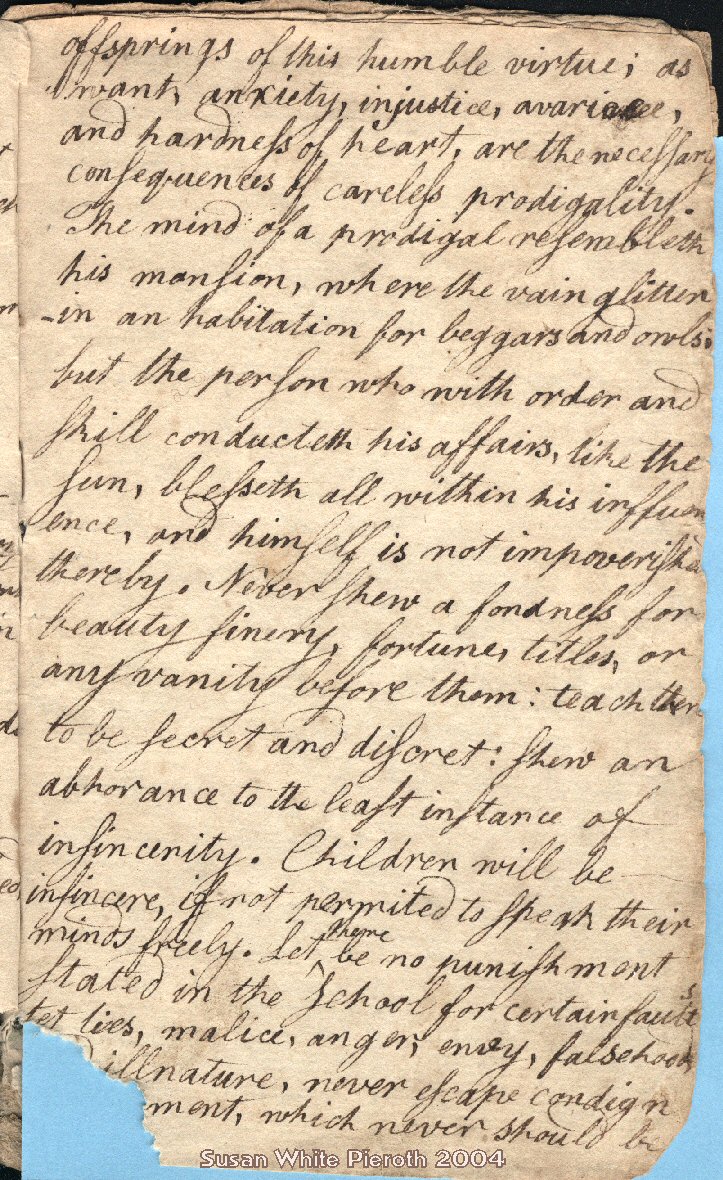 offsprings of this humble virtue; as
want, anxiety, injustice, avarice,
and hardneſs of heart, are the neceſsary
conſequences of careleſs prodigality.
The mind of a prodigal reſembleth
his manſion, where the vain glitter
-in an habitation for beggars and owls;
but the perſon who with order and
ſkill conducteth his affairs, like the
ſun, bleſseth all within his influ
ence, and himſelf is not impoveriſhed
thereby. Never ſhew a fondneſs for
beauty finery, fortune, titles, or
any vanity before them: teach them
to be ſecret and diſcret: ſhew an
abhorance to the leaſt inſtance of
inſincerity. Children will be
inſincere, if not permited to ſpeak their
minds freely. Let there be no puniſhment
ſtated in the School for certain faults
let lies, malice, anger, envy, falsehood
illnature, never eſcape condign
ment, which never should be
Susan White Pieroth 2004